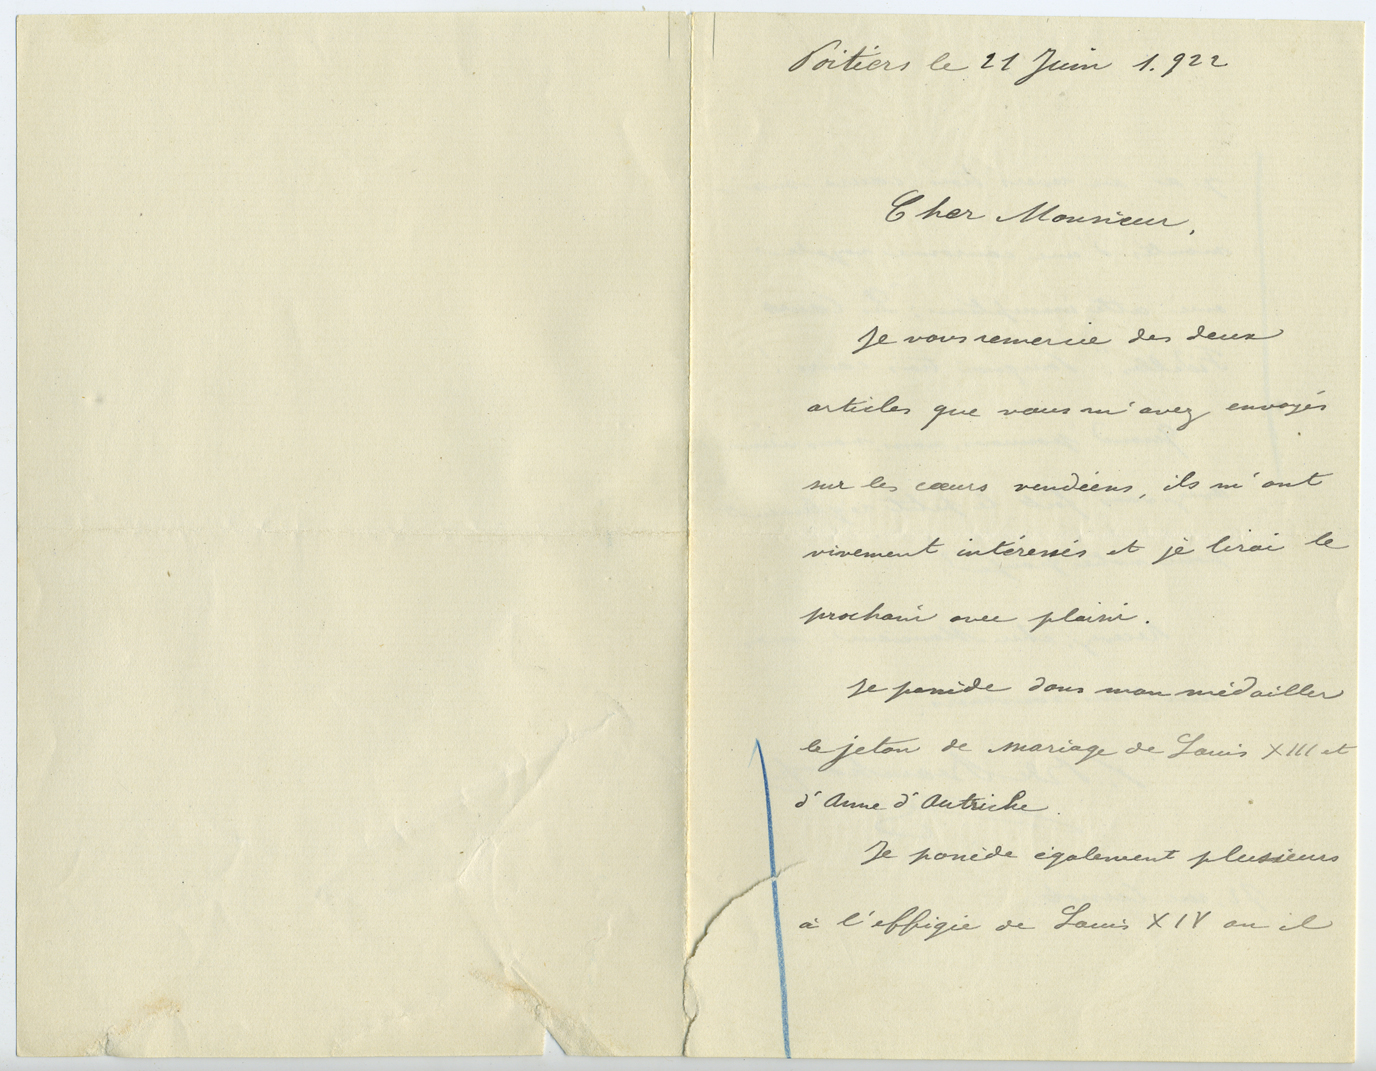 Poitiers le 21 Juin 1.922
Cher Monsieur,
Je vous remercie des deux
articles que vous m'avez envoyés
sur les cœurs vendéens, ils m'ont
vivement intéressés et je lirai le
prochain avec plaisir.
Je possède dans mon médailler
le jeton de mariage de Louis XIII et
d'Anne d'Autriche.
Je possède également plusieurs
à l'effigie de Louis XIV ou il